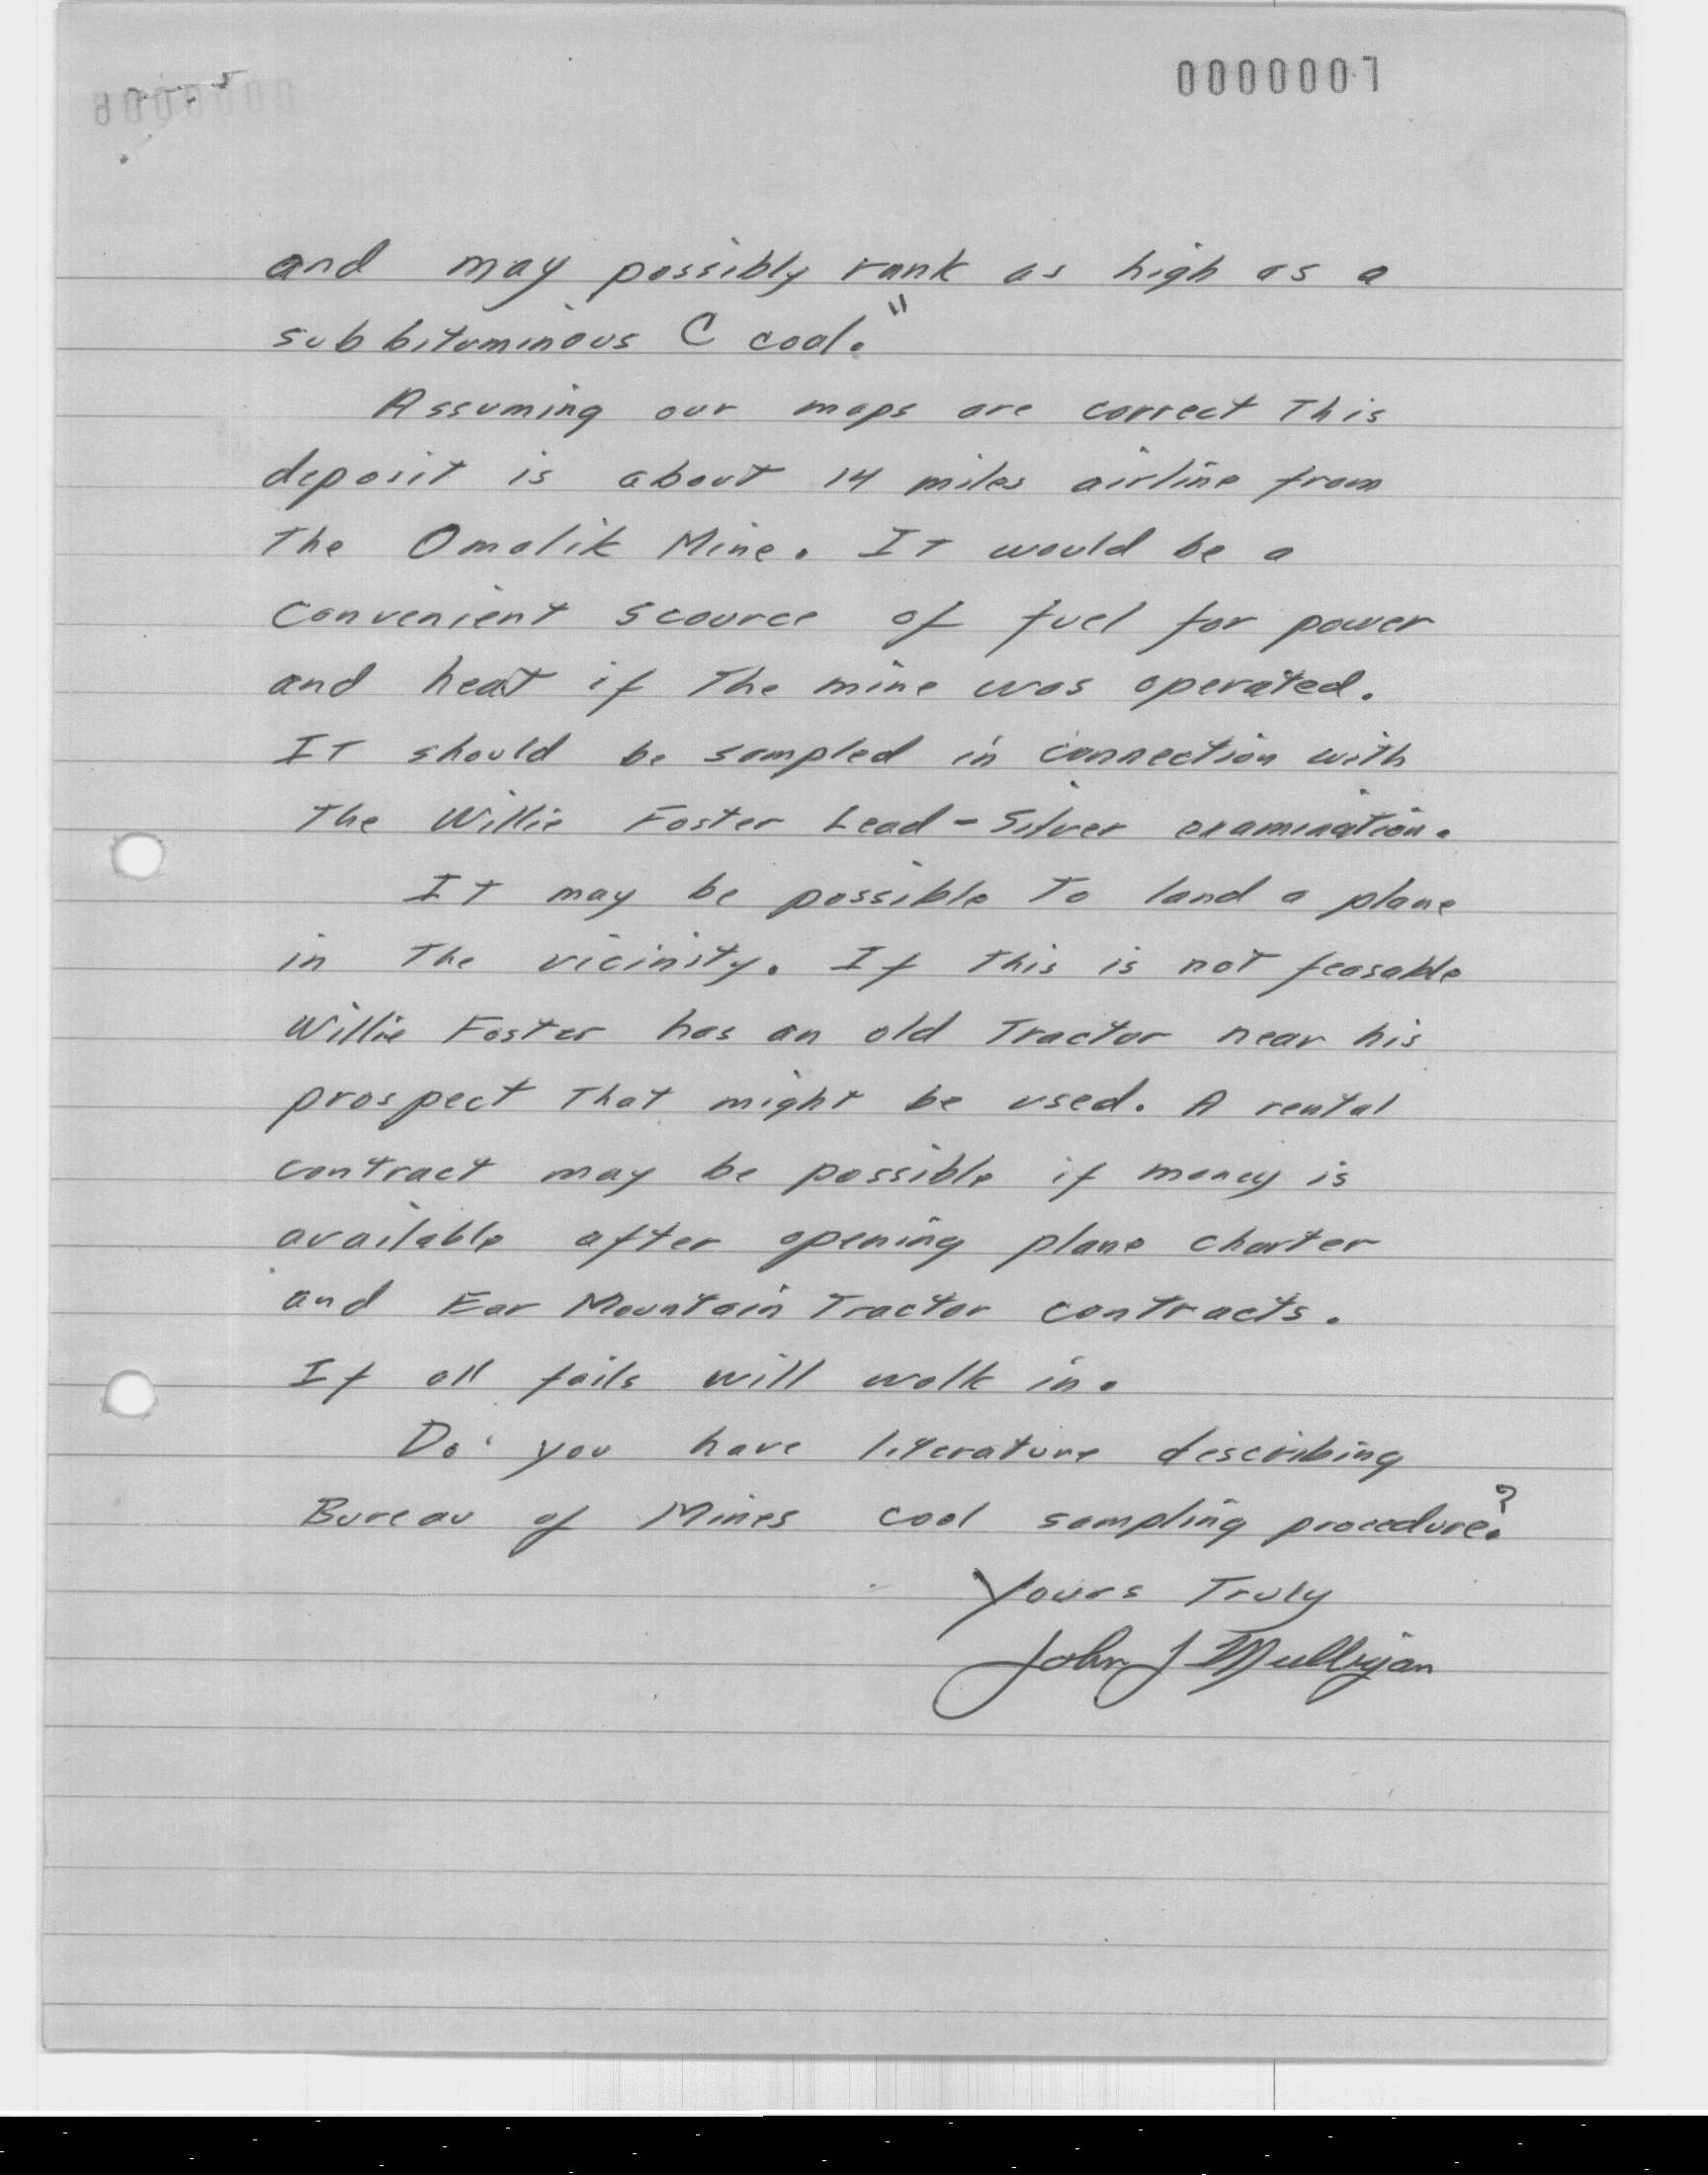 0000007
and may possibly rank as high as a
subbituminous C coal."
Assuming our maps are correct This
deposit is about 14 miles airline from
The Omalik Mine. IT would be a
convenient scource of fuel for power
and heat if The mine was operated.
IT should be sampled in connection with
The Willie Foster Lead-Silver examination.
IT may be possible To land a plane
in The vicinity. If This is not feasable
Willie Foster has an old Tractor near his
prospect That might be used. A rental
contract may be possible if money is
available after opening plane charter
and Ear Mountain Tractor contracts.
If all fails will walk in.
Do you have literature describing
Bureau of Mines coal sampling procedure?
Yours Truly
John J Mulligan